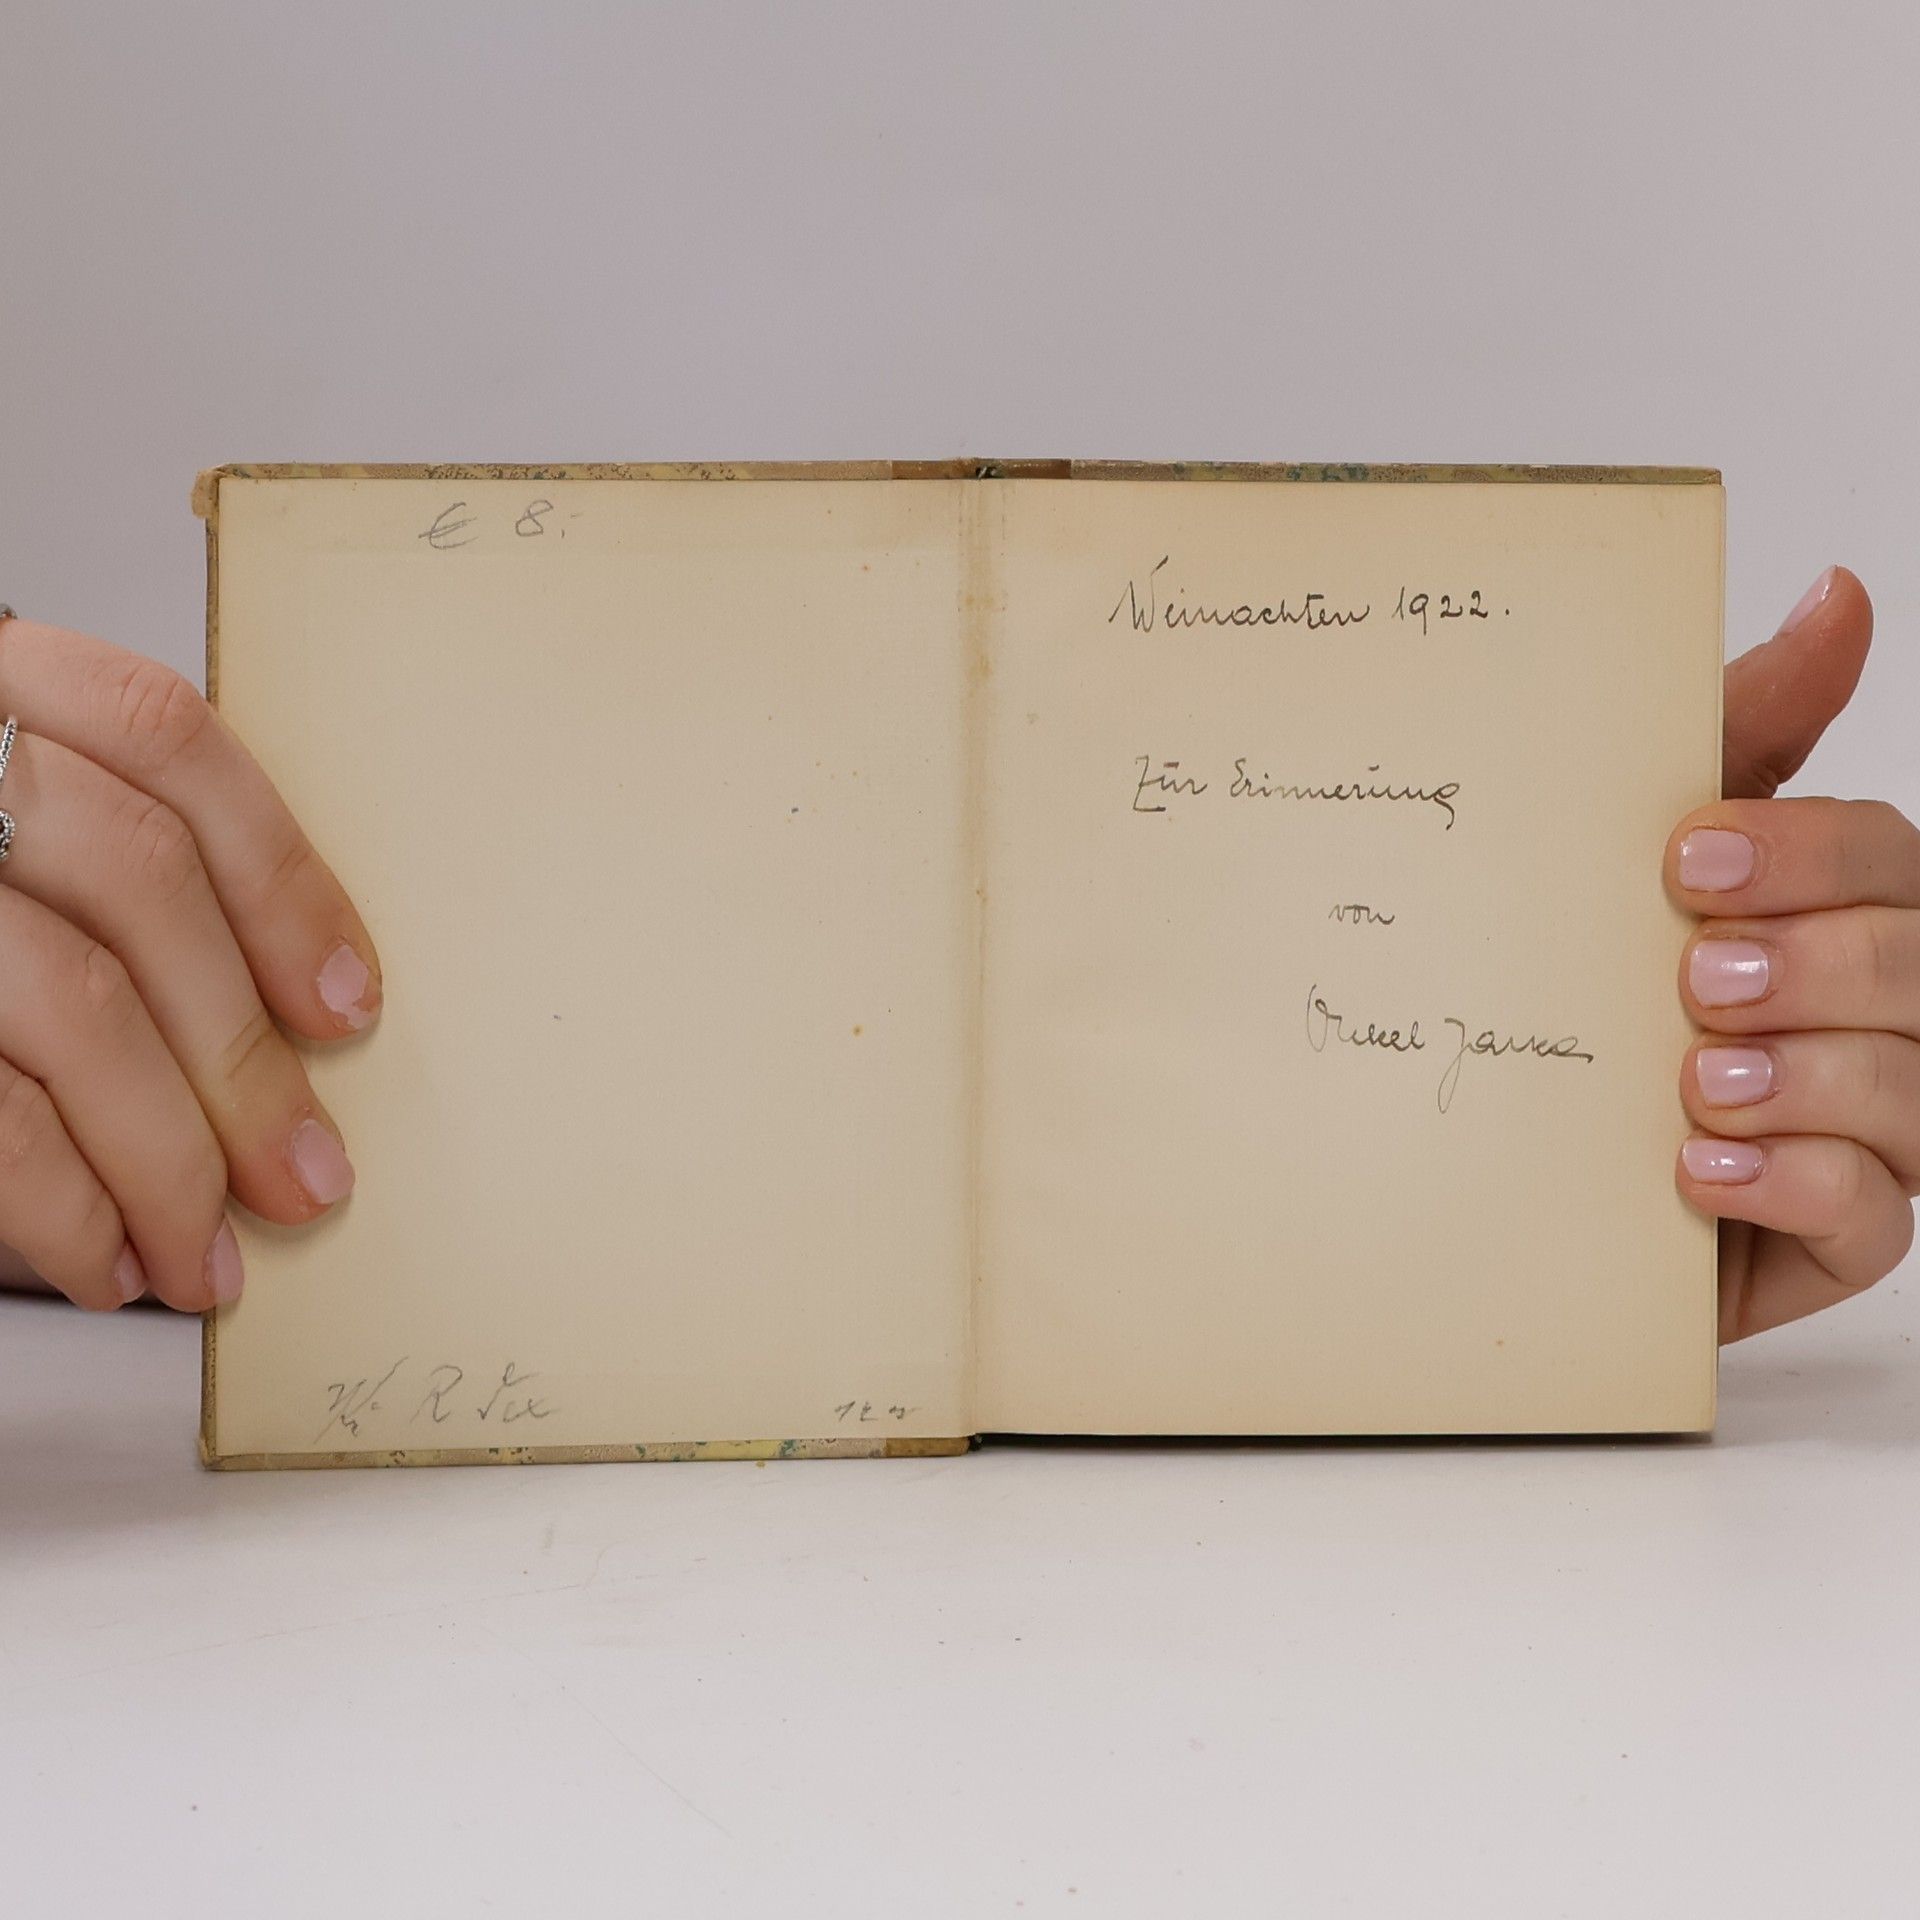 € 8.-
Weinachten 1922.
Zur Erinnerung
von
Onkel Janka